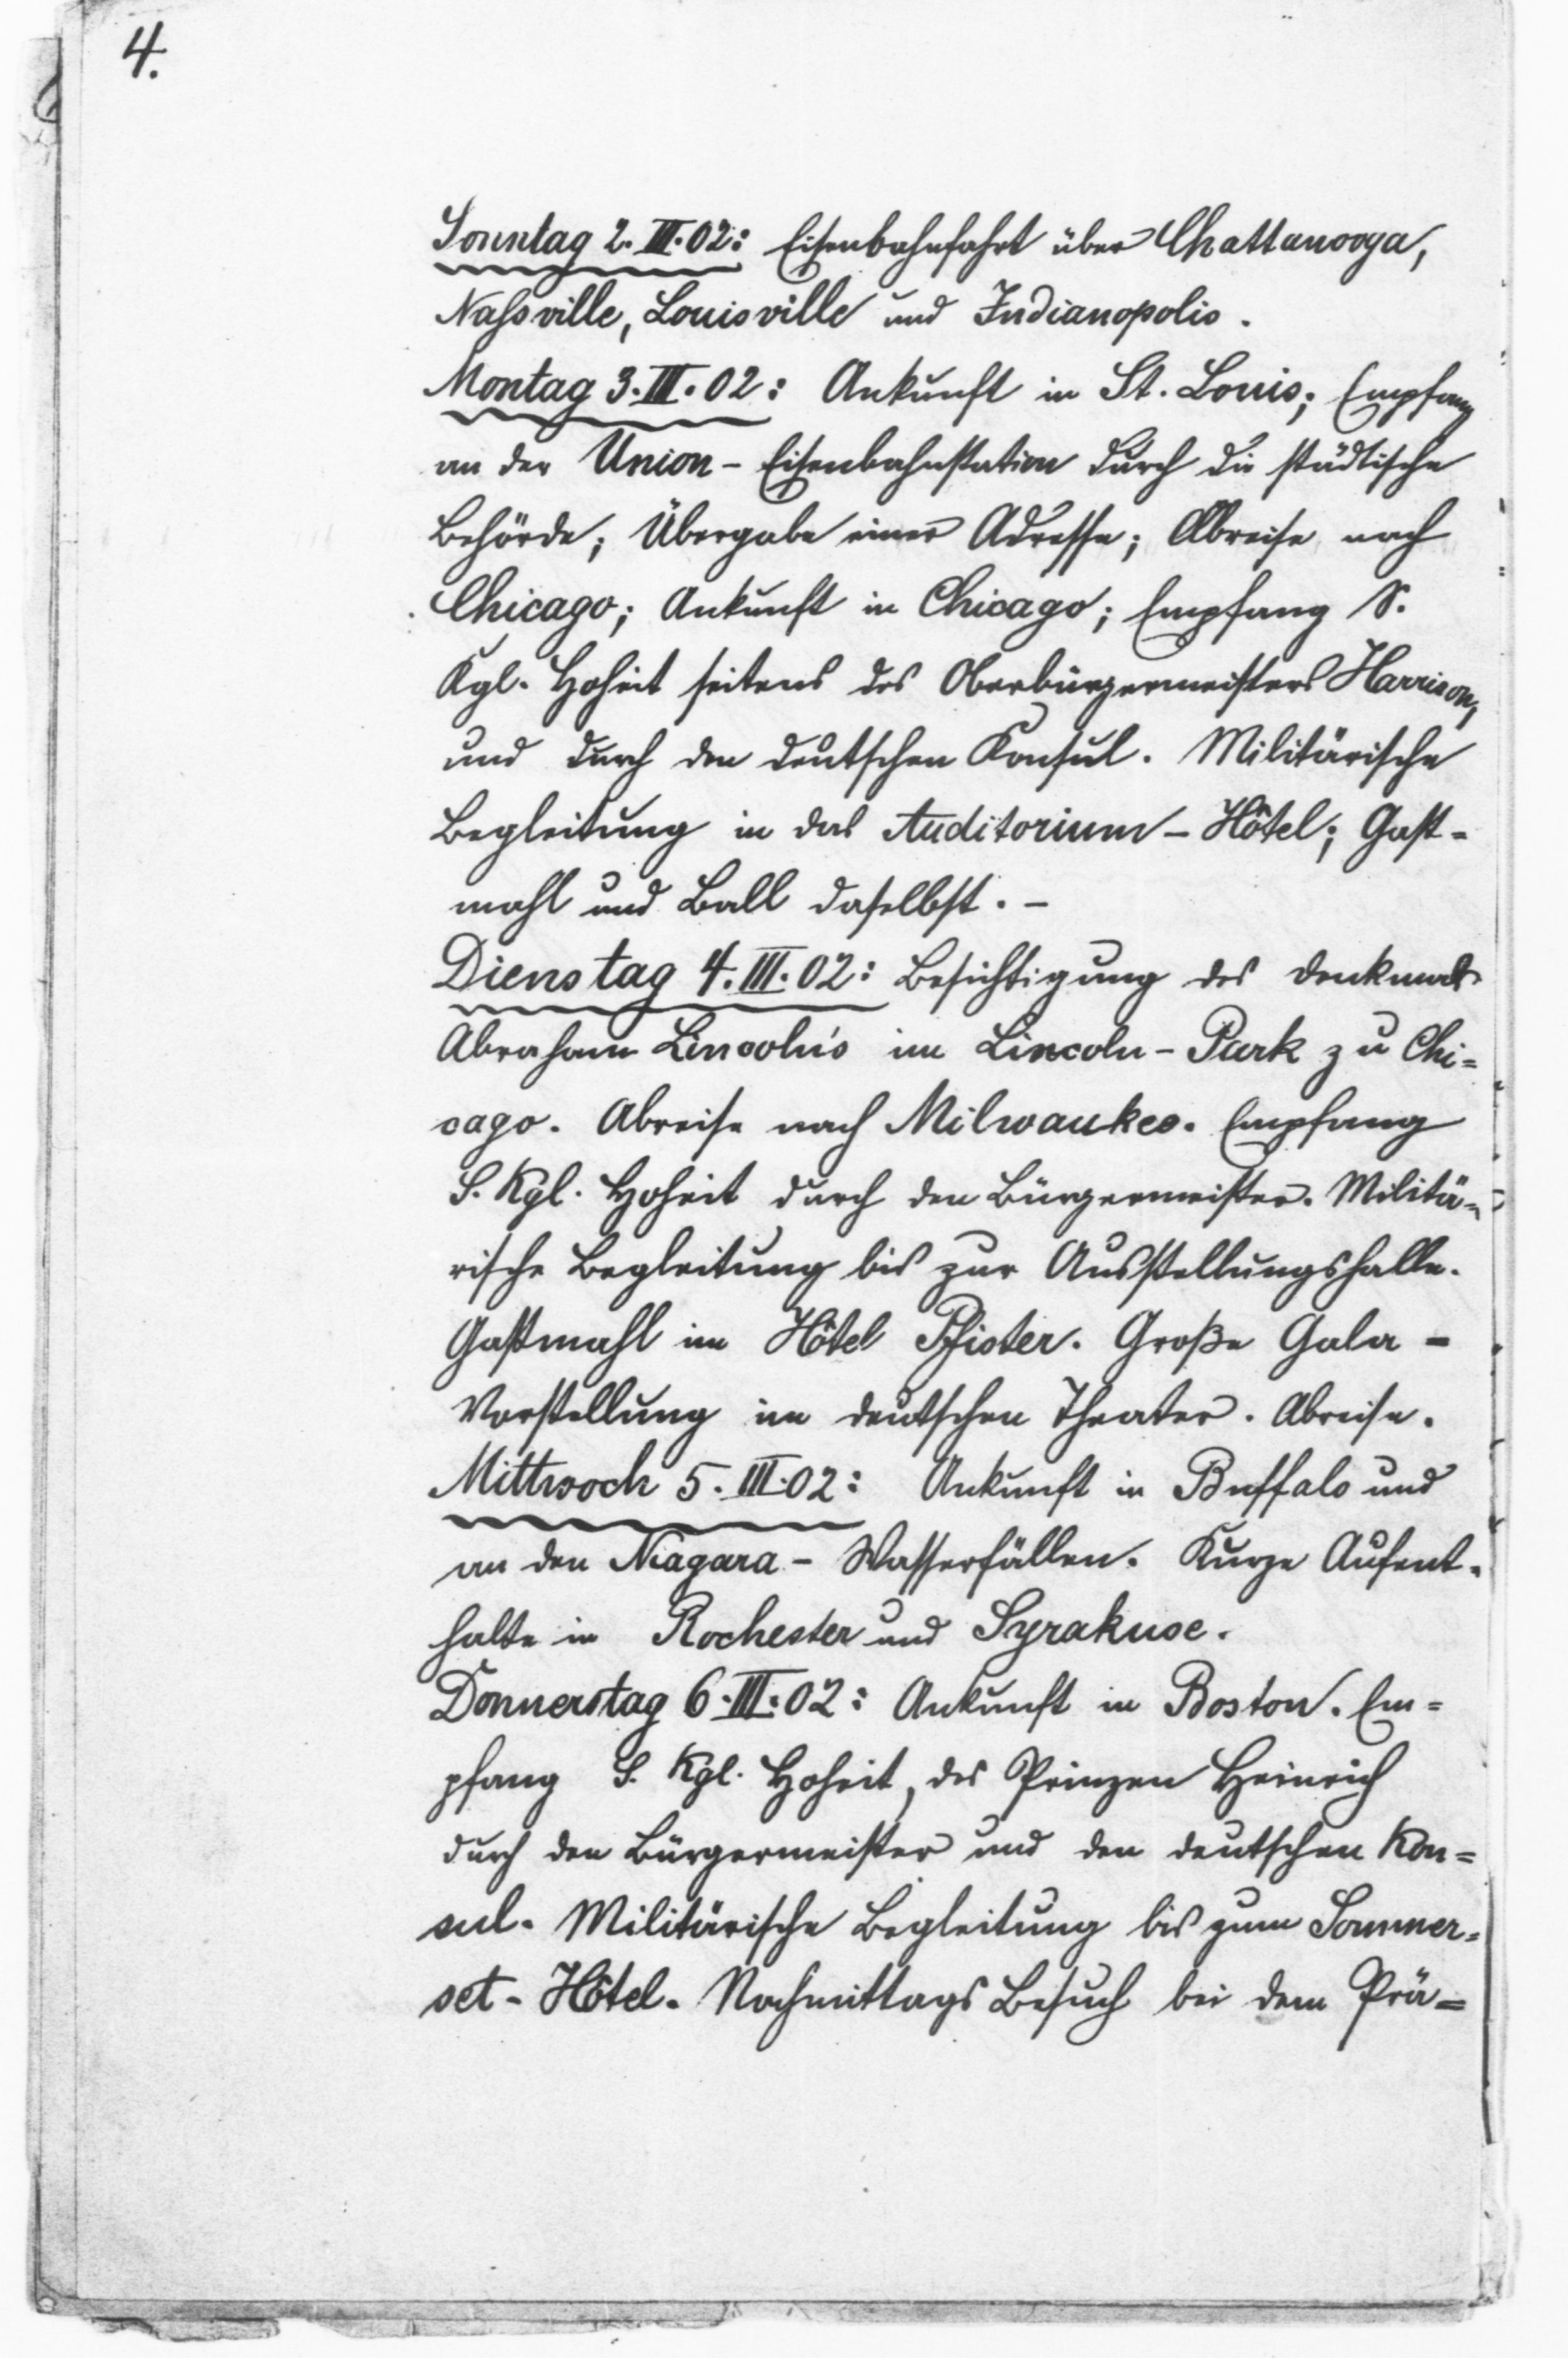 4.
Sonntag 2. III. 02: Eisenbahnfahrt über Chattanooga,
Nahsville, Louisville und Indianopolis.
Montag 3. III. 02: Ankunft in St. Louis; Empfang
an der Union - Eisenbahnstation durch die städtische
Behörde; Übergabe einer Adresse; Abreise nach
Chicago; Ankunft in Chicago; Empfang S.
Kgl. Hoheit seitens des Oberbürgermeisters Harrison,
und durch den deutschen Konsul. Militärische
Begleitung in das Auditorium - Hôtel; Gast-
mahl und Ball daselbst. -
Dienstag 4. III. 02: Besichtigung des Denkmals
Abraham Lincoln's im Lincoln - Park zu Chi-
cago. Abreise nach Milwaukee. Empfang
S. Kgl. Hoheit durch den Bürgermeister. Militä-
rische Begleitung bis zur Ausstellungshalle.
Gastmahl im Hôtel Pfister. Große Gala -
Vorstellung im deutschen Theater. Abreise.
Mittwoch 5. III. 02: Ankunft in Buffalo und
an den Niagara - Wasserfällen. Kurze Aufent-
halte in Rochester und Syrakuse.
Donnerstag 6. III. 02: Ankunft in Boston. Em-
pfang S. Kgl. Hoheit, des Prinzen Heinrich
durch den Bürgermeister und den deutschen Kon-
sul. Militärische Begleitung bis zum Sommer-
set - Hôtel. Nachmittags Besuch bei dem Prä-